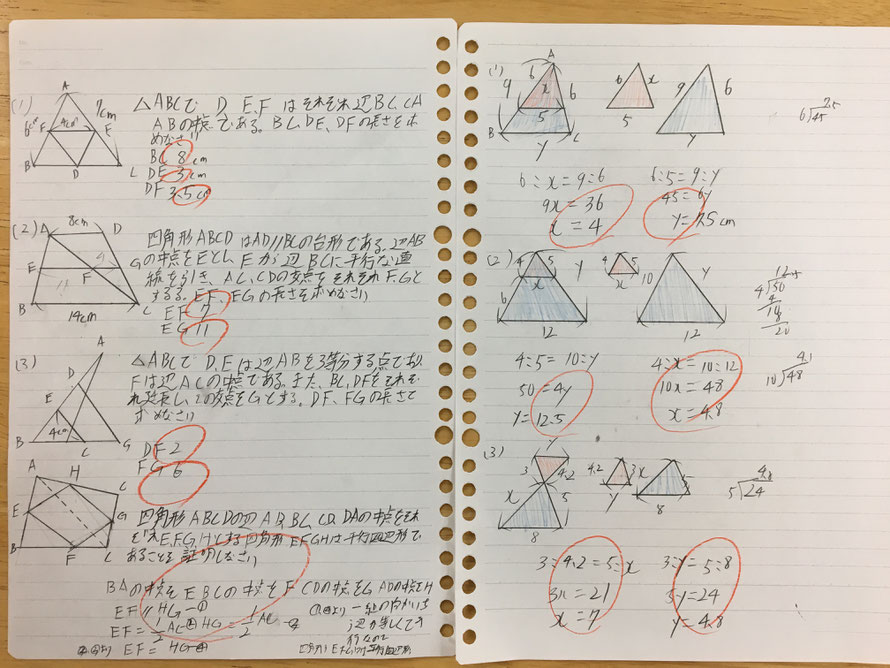 (1)
A
7cm
6cm
4cm
F
E
B
D
C
△ABCで D、E、Fはそれぞれ辺BC、CA
ABの中点である。BC、DE、DFの長さを求
めなさい
BC 8cm
DE 3cm
DF 3.5cm
(2)
8cm
A
D
E
F
G
B
C
14cm
四角形ABCDはAD//BCの台形である。辺AB
の中点をEとし、Eから辺BCに平行な直
線を引き、AC、CDの交点をそれぞれF、Gと
する。EF、FGの長さを求めなさい
EF 7
EG 11
(3)
A
D
E
4cm
B
C
G
△ABCで D、Eは辺ABを3等分する点であり
Fは辺ACの中点である。また、BC、DFをそれぞ
れ延長し、その交点をGとする。DF、FGの長さを
求めなさい
DF 2
FG 6
A
H
E
G
B
F
C
四角形ABCDの辺AD、BC、CD、DAの中点をそれ
ぞれE、F、G、Hとする四角形EFGHは平行四辺形で
あることを証明しなさい
BAの中点をE BCの中点をF CDの中点をG ADの中点をH
EF // HG ー①
EF = 1/2 AC HG = 1/2 AC
EF = HG
(1)
A
6
9
6
5
B
C
y
6
x
5
9
6
y
6:x=9:6
9x=36
x=4
6:5=9:y
45=6y
y=7.5cm
(2)
4
5
y
x
6
12
4
5
x
10
y
12
4:5=10:y
50=4y
y=12.5
4:x=10:12
10x=48
x=4.8
(3)
y
3
4.2
x
5
8
4.2
3
y
x
5
8
3:4.2=5:x
3x=21
x=7
3:y=5:8
5y=24
y=4.8